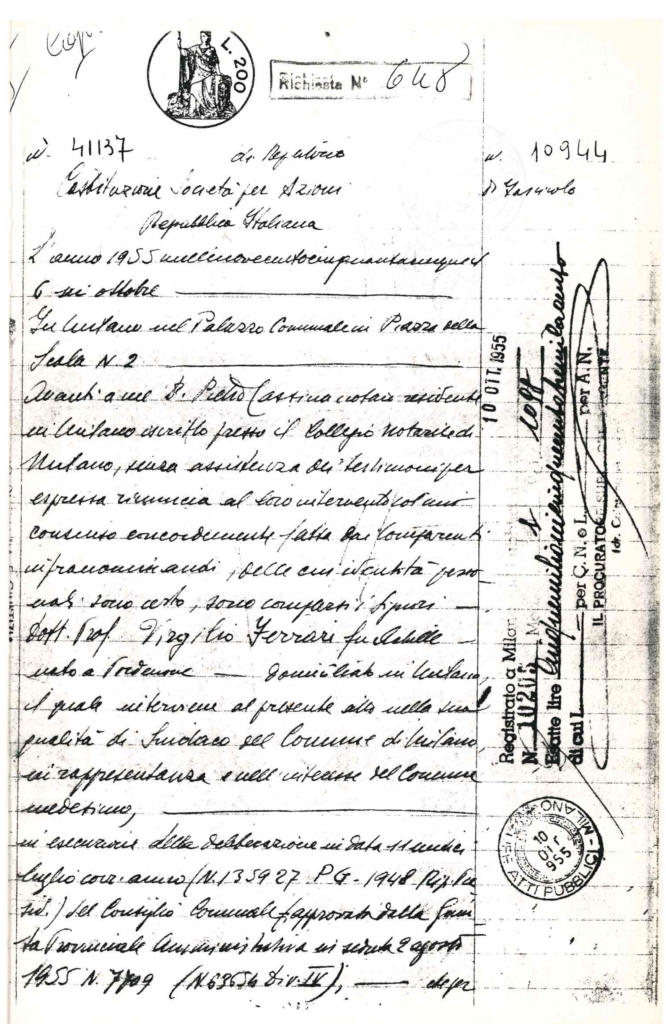 Cop
L. 200
Richiesta N° 648
N. 41137 di Repertorio n. 10944
Costituzione Società per Azioni di Fascicolo
Repubblica Italiana
L'anno 1955 millenovecentocinquantacinque il
6 sei ottobre
In Milano nel Palazzo Comunale in Piazza della
Scala N. 2
Avanti a me D. Pietro Cassina notaio residente
in Milano iscritto presso il Collegio notarile di
Milano, senza assistenza dei testimoni per
espressa rinuncia al loro intervento col mio
consenso concordemente fatta dai comparenti
infranominandi, delle cui identità perso
nali sono certo, sono comparsi i Signori
Dott. Prof. Virgilio Ferrari fu Achille
nato a Pordenone domiciliato in Milano,
il quale interviene al presente atto nella sua
qualità di Sindaco del Comune di Milano,
in rappresentanza e nell'interesse del Comune
medesimo,
in esecuzione della deliberazione in data 11 undici
luglio corr. anno (N. 135927 P.G. - 1948 Rip. Pre
sid.) del Consiglio Comunale (approvata dalla Giun
ta Provinciale Amministrativa in seduta 2 agosto
1955 N. 7709 Div. IV);
10 OTT. 1955
Registrato a Milano
N. 10205
Esatte lire cinquemilionicinquecentoottomiladuecento
di cui L. per C.N. e L. per A.N.
IL PROCURATORE
MILANO
ATTI PUBBLICI
10 OTT 955